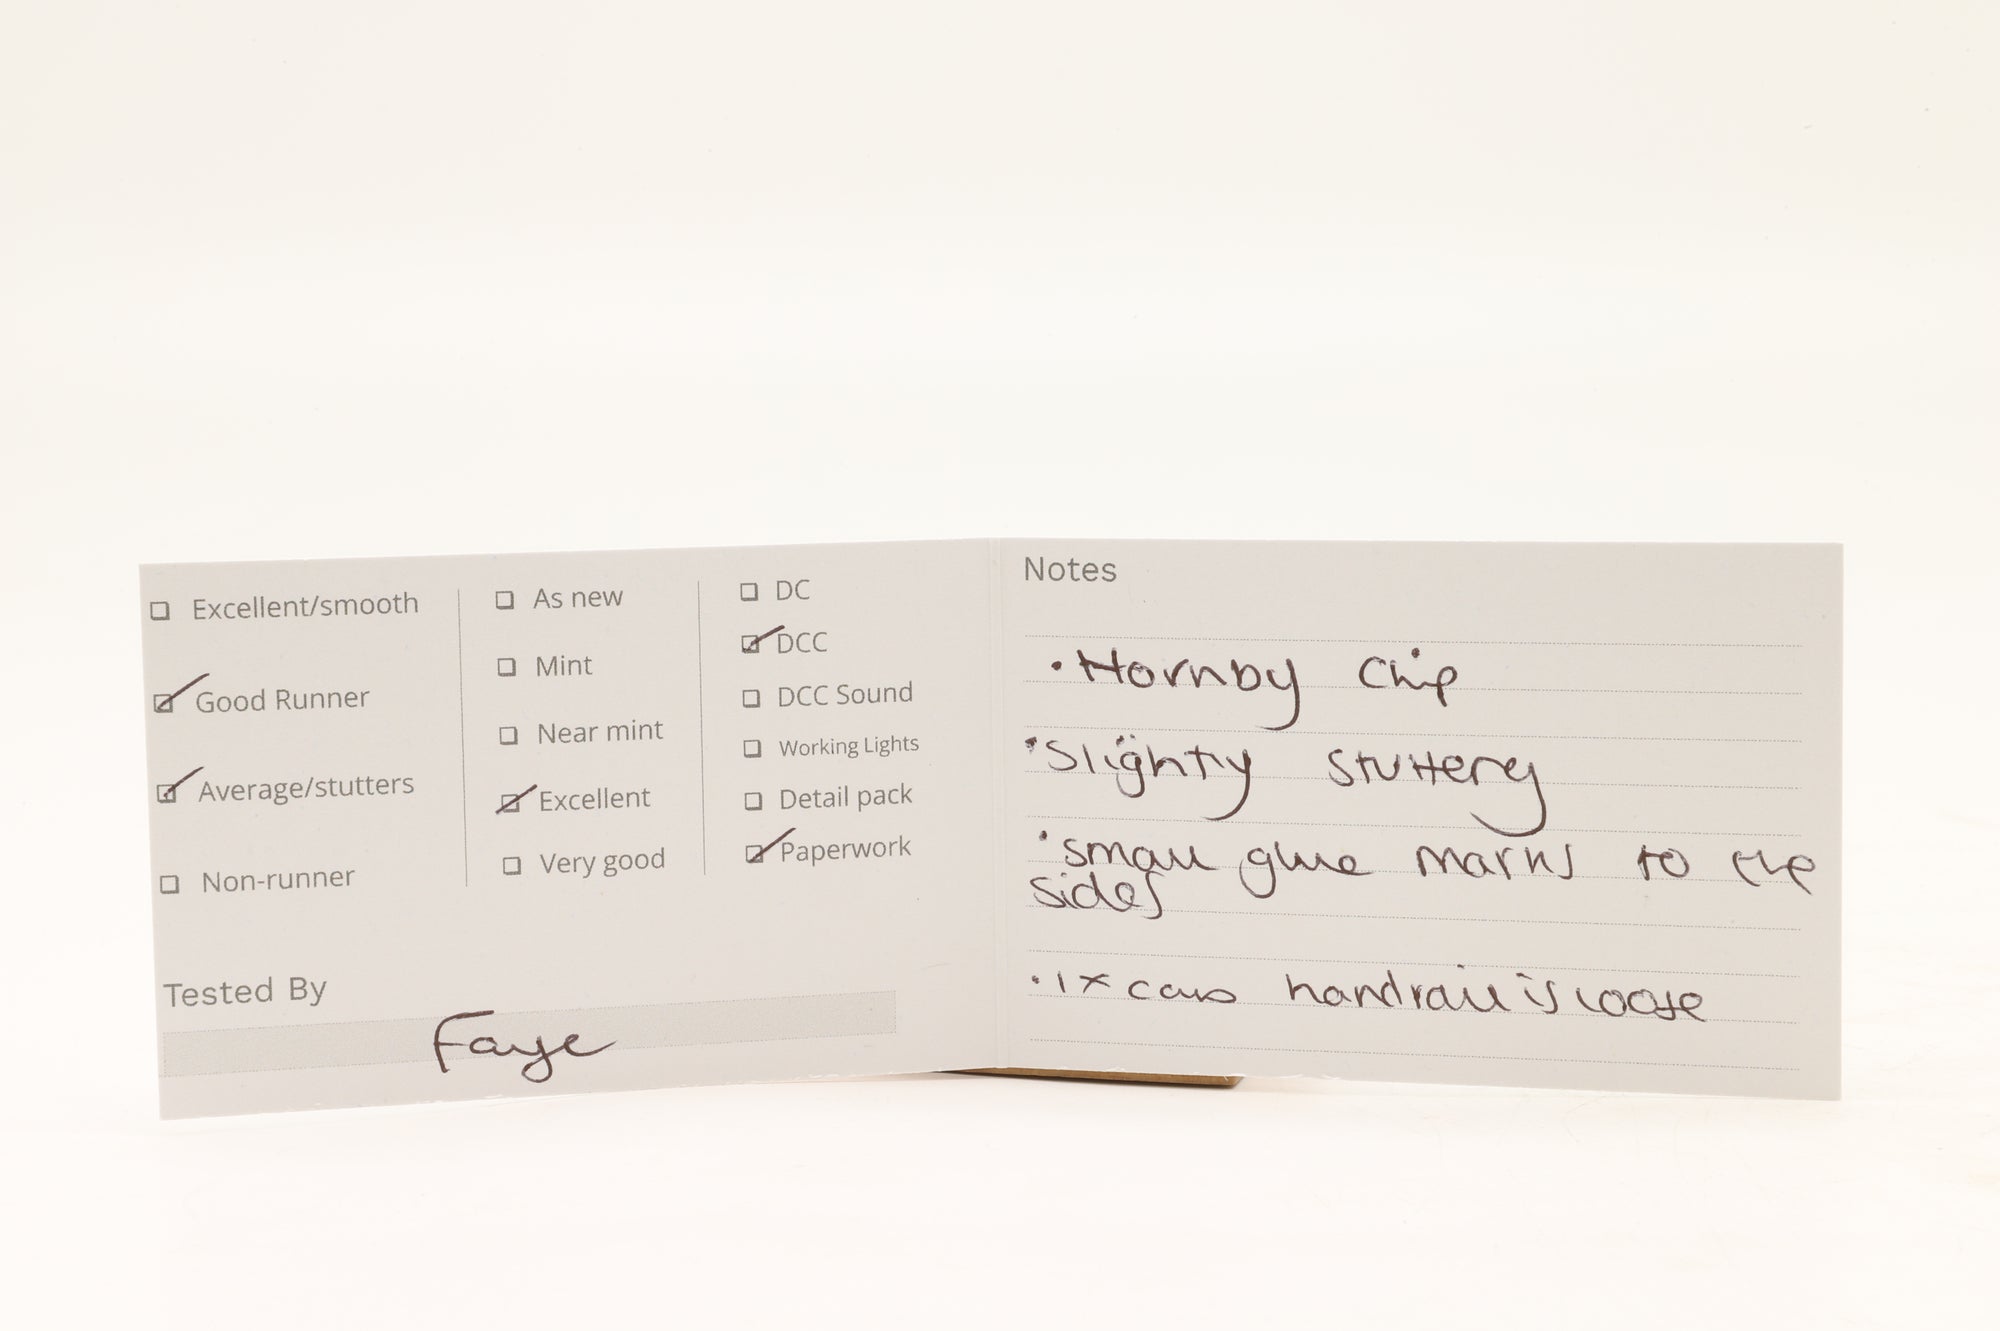 Excellent/smooth
Good Runner
Average/stutters
Non-runner
As new
Mint
Near mint
Excellent
Very good
DC
DCC
DCC Sound
Working Lights
Detail pack
Paperwork
Tested By
Faye
Notes
• Hornby Chip
• Slighty stuttery
• small glue marks to the
sides
• 1x cab handrail is loose